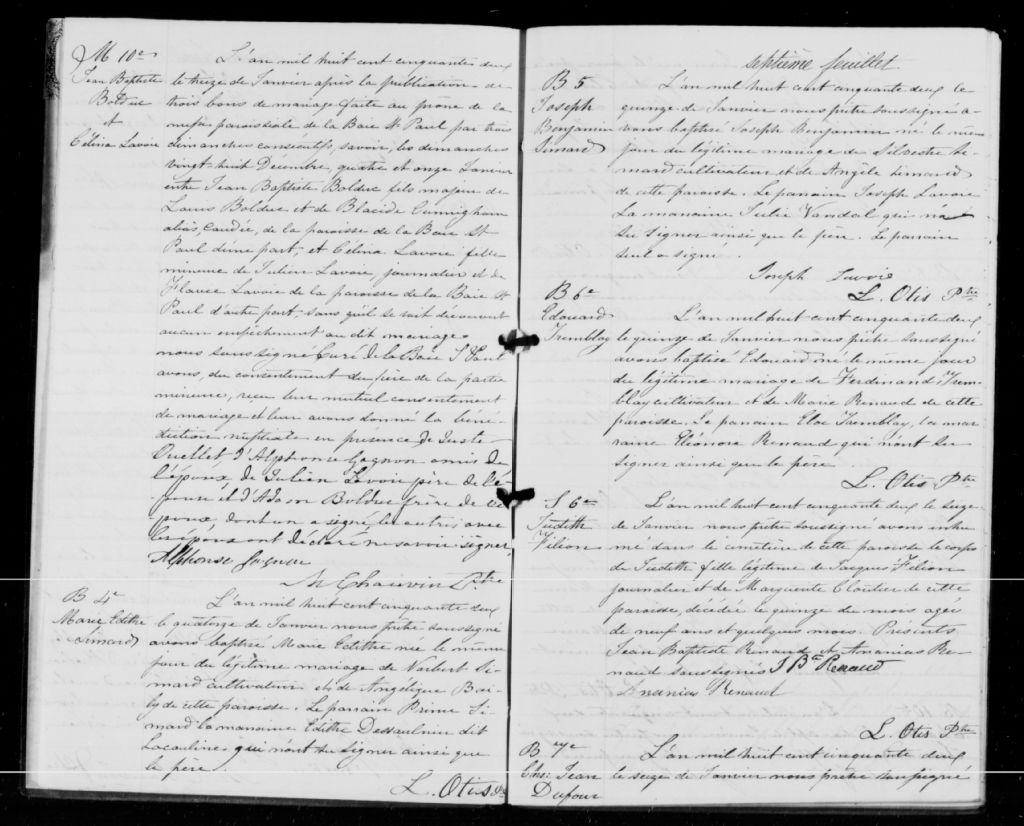 M 10e
Jean Baptiste
Bolduc
et
Célina Lavoie
L'an mil huit cent cinquante deux
le treize de Janvier après la publication de
trois bans de mariage faite au prône de la
messe paroissiale de la Baie St Paul par trois
dimanches consécutifs, savoir, les dimanches
vingt-huit Décembre, quatre et onze Janvier
entre Jean Baptiste Bolduc fils majeur de
Louis Bolduc et de Blacide Cunnigham
alias, Candie, de la paroisse de la Baie St
Paul d'une part, et Célina Lavoie fille
mineure de Julien Lavoie, journalier et de
Flavie Lavoie de la paroisse de la Baie St
Paul d'autre part, sans qu'il se soit découvert
aucun empêchement au dit mariage
nous soussigné Curé de la Baie S Paul
avons, du consentement du père de la partie
mineure, reçu leur mutuel consentement
de mariage et leur avons donné la béné-
diction nuptiale en présence de Juste
Ouellet d'Alphonse Gagnon amis de
l'époux, de Julien Lavoie père de l'é-
pouse et d'Adam Bolduc frère de l'é
poux, dont un a signé les autres avec
les époux ont déclaré ne savoir signer,
Alphonse Gagnon
Ptre
B 4e
Marie Edithe
Simard
L'an mil huit cent cinquante deux
le quatorze de Janvier nous prêtre soussigné
avons baptisé Marie Edithe née le même
jour du légitime mariage de Norbert Si-
mard cultivateur et de Angélique Bai-
ly de cette paroisse. Le parrain Prime Si-
mard la marraine Edithe Dessaulnier dit
qui n'ont su signer ainsi que
le père.
L. Otis Ptre
Septième feuillet
B 5
Joseph
Benjamin
Simard
L'an mil huit cent cinquante deux le
quinze de Janvier nous prêtre soussigné a-
vons baptisé Joseph Benjamin né le même
jour du légitime mariage de Silvestre Si-
mard cultivateur et de Angèle Simard
de cette paroisse. Le parrain Joseph Lavoie
La marraine Julie Vandal qui n'a
su signer ainsi que le père. Le parrain
seul a signé.
Joseph Lavoie
L. Otis Ptre
B 6e
Edouard
Tremblay
L'an mil huit cent cinquante deux
le quinze de Janvier nous prêtre soussigné
avons baptisé Edouard né le même jour
du légitime mariage de Ferdinand Trem-
blay cultivateur et de Marie Renaud de cette
paroisse. Le parrain Eloe Tremblay, la mar-
raine Eléonore Renaud qui n'ont su
signer ainsi que le père
L. Otis Ptre
S 6e
Judith
Filion
L'an mil huit cent cinquante deux le seize
de Janvier nous prêtre soussigné avons inhu
mé dans le cimetière de cette paroisse le corps
de Judith fille légitime de Jacques Filion
journalier et de Marguerite Cloutier de cette
paroisse, décédée le quinze de mois agée
de neuf ans et quelques mois. Présents
Jean Baptiste Renaud et Ananias Re-
naud soussignés J Bte Renaud
Ananias Renaud
L. Otis Ptre
B 7e
Chs: Jean
Dufour
L'an mil huit cent cinquante deux
le seize de Janvier nous prêtre soussigné